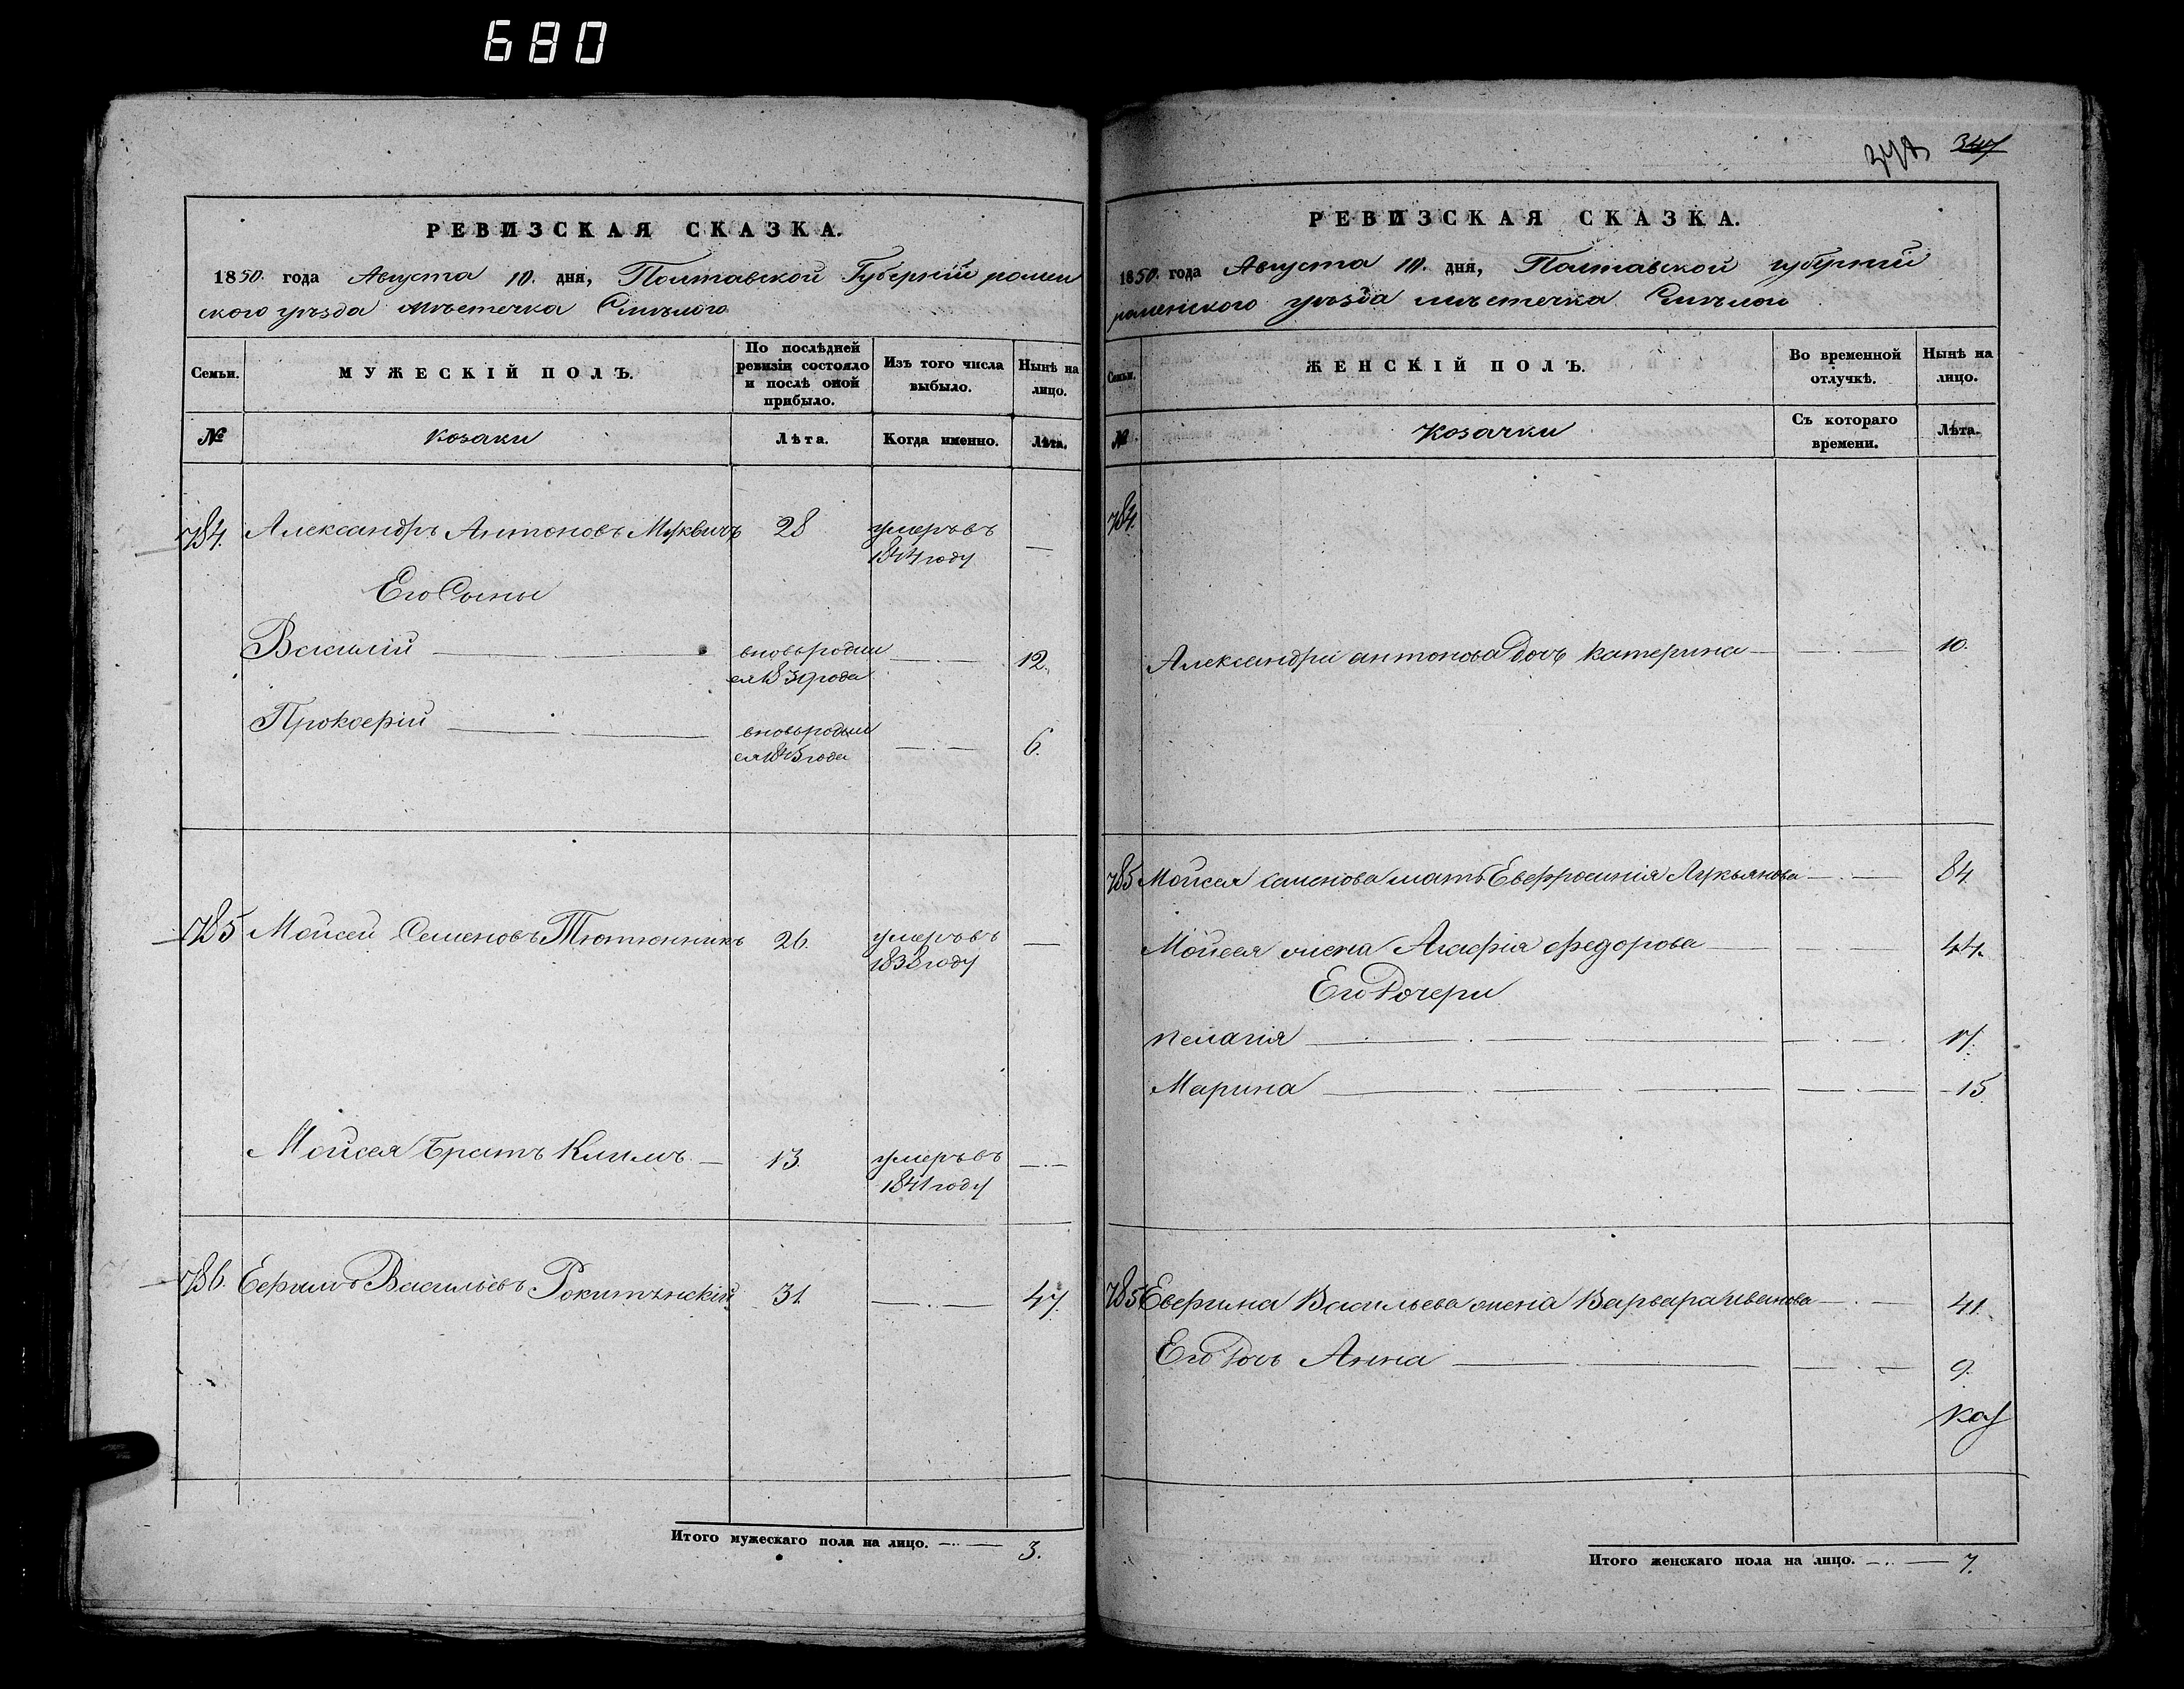 680
347
РЕВИЗСКАЯ СКАЗКА.
1850. года Августа 10. дня, Полтавской Губерніи ромен
ского уѣзда мѣстечка Смѣлого
Семьи.
МУЖЕСКІЙ ПОЛЪ.
По послѣдней
ревизіи состояло
и послѣ оной
прибыло.
Изъ того числа
выбыло.
Нынѣ на
лицо.
№
Козаки
Лѣта.
Когда именно.
Лѣта.
784. Александръ Антоновъ 28 умеръ въ —
1844 году
Его Сыны
Василій — вновь родил — 12.
ся 1839 рода
Прокофій — вновь родил — 6.
ся 1845 года
785 Мойсей Семеновъ Тютюнникъ 26. умеръ въ —
1838 году
Мойсея братъ Климъ — 13. умеръ въ —
1841 году
786. Ефимъ Васильевъ Рокитянскій 31. — 47.
Итого мужескаго пола на лицо. — 3.
РЕВИЗСКАЯ СКАЗКА.
1850. года Августа 10. дня, Полтавской губерніи
роменского уѣзда мѣстечка Смѣлого
Семьи.
ЖЕНСКІЙ ПОЛЪ.
Во временной
отлучкѣ.
Нынѣ на
лицо.
№
Козачки
Съ котораго
времени.
Лѣта.
784.
Александра антонова дочь Катерина — 10.
785 Мойсея семенова мать Евфросинія Лукьянова — 84.
Мойсея жена Агафія федорова — 44.
Его Дочери
пелагія — 17.
Марина — 15
786 Евфима Васильева жена Варвара иванова — 41.
Его дочь Анна — 9.
Итого женскаго пола на лицо. — 7.